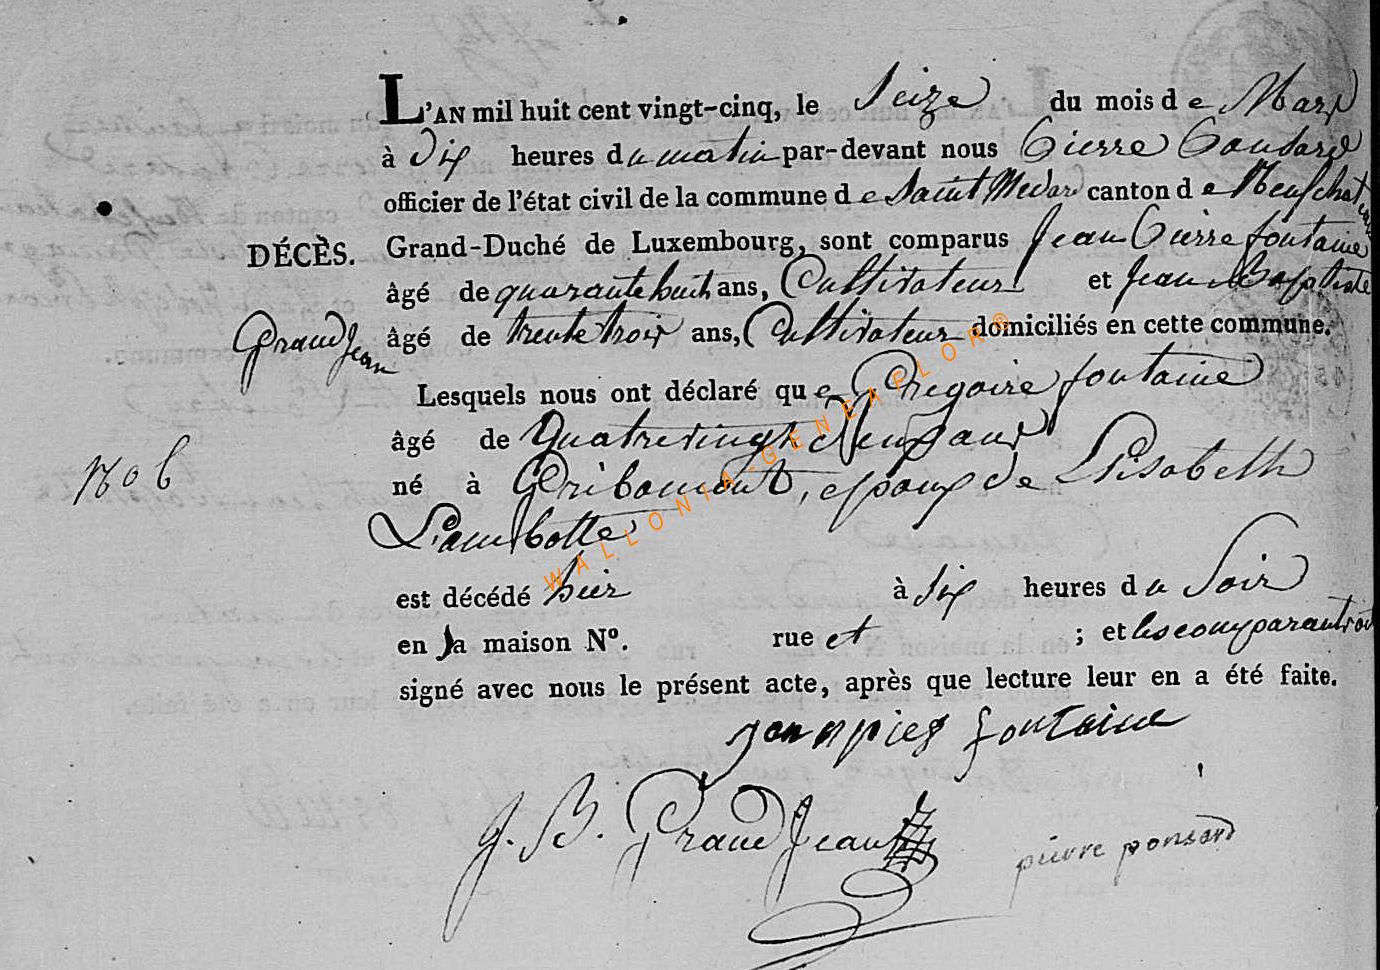 L'AN mil huit cent vingt-cinq, le Seize du mois de Mars
à Dix heures du matin par-devant nous Pierre Ponsard
officier de l'état civil de la commune de Saint Medard canton de Neufchateau
DÉCÈS. Grand-Duché de Luxembourg, sont comparus Jean Pierre fontaine
âgé de quarante huit ans, Cultivateur et Jean Baptiste
Grand Jean âgé de trente trois ans, Cultivateur domiciliés en cette commune.
Lesquels nous ont déclaré que Gregoire fontaine
âgé de Quatre vingt Neuf ans
No 6 né à Gribomont, epoux de Elisabeth
Lambotte
est décédé hier à Six heures du Soir
en sa maison Nº. rue et ; et les comparants ont
signé avec nous le présent acte, après que lecture leur en a été faite.
fontaine
J. B. Grand Jean pierre ponsard
WALLONIA-GENEAFLOR®